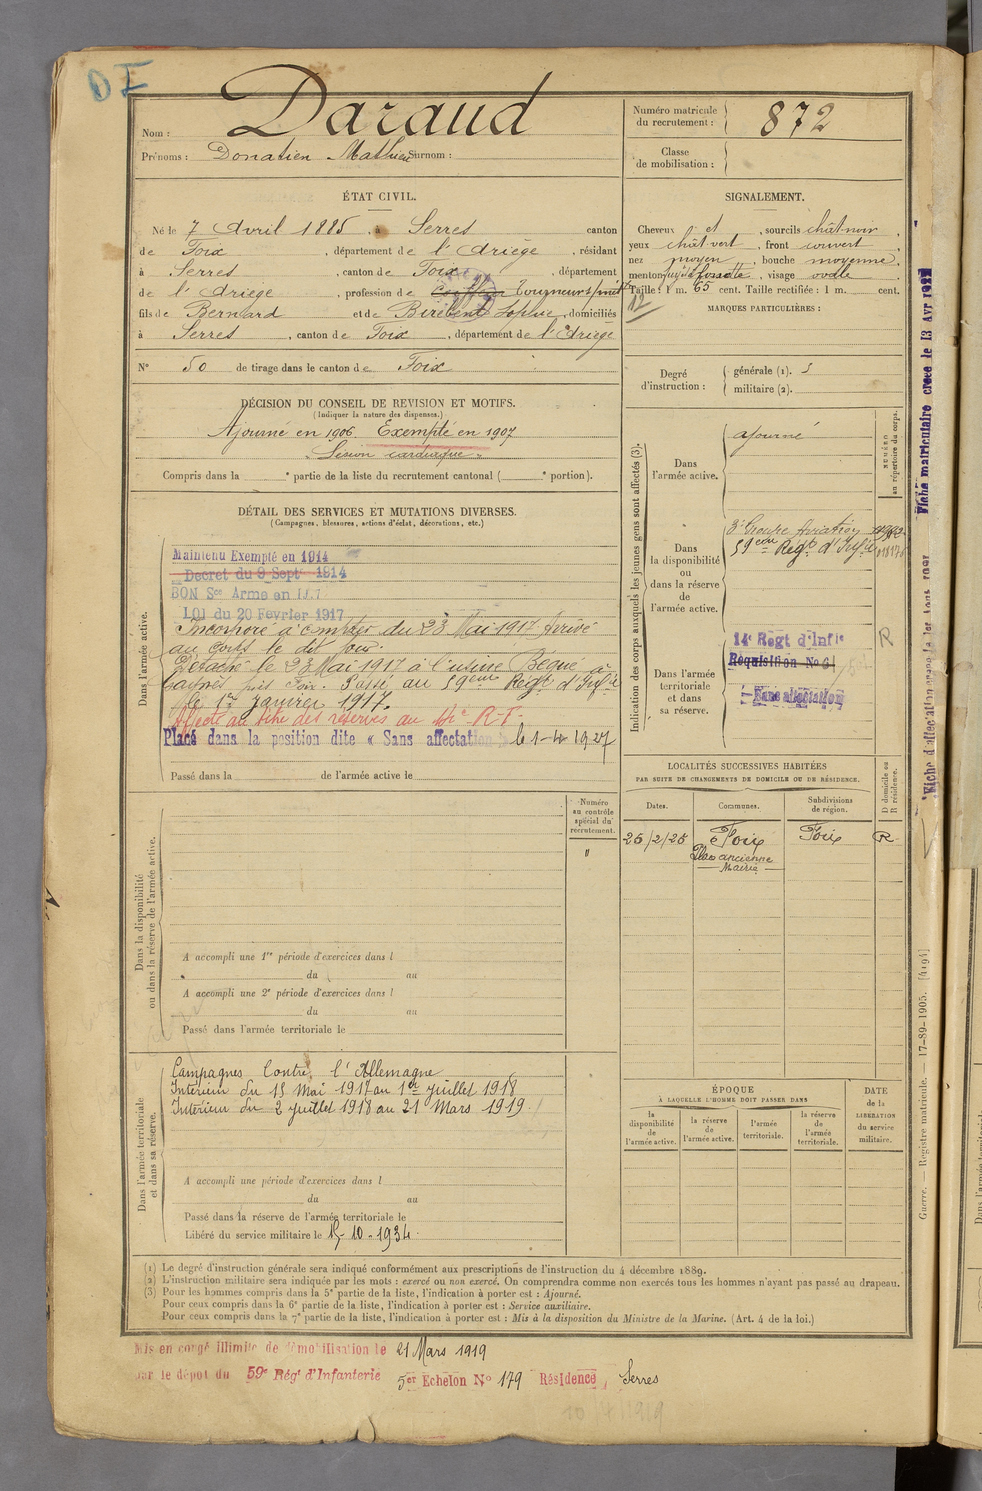 DI
Nom : Daraud
Prénoms : Donatien Mathieu Surnom :
Numéro matricule du recrutement : 872
Classe de mobilisation :
ÉTAT CIVIL.
Né le 7 Avril 1885, à Serres canton
de Foix, département de l'Ariège, résidant
à Serres, canton de Foix, département
de l'Ariège, profession de Coiffeur Tourneur s/
fils de Bernard et de Birebent Sophie, domiciliés
à Serres, canton de Foix, département de l'Ariège
N° 50 de tirage dans le canton de Foix
SIGNALEMENT.
Cheveux et, sourcils chât noir,
yeux chât vert, front couvert,
nez moyen, bouche moyenne,
menton à fossette, visage ovale
Taille : 1 m. 65 cent. Taille rectifiée : 1 m. cent.
12
MARQUES PARTICULIÈRES :
Degré d'instruction :
générale (1). 3
militaire (2).
DÉCISION DU CONSEIL DE REVISION ET MOTIFS.
(Indiquer la nature des dispenses.)
Ajourné en 1906. Exempté en 1907
"Lésion cardiaque"
Compris dans la e partie de la liste du recrutement cantonal ( e portion).
DÉTAIL DES SERVICES ET MUTATIONS DIVERSES.
(Campagnes, blessures, actions d'éclat, décorations, etc.)
Dans l'armée active.
Maintenu Exempté en 1914
Decret du 9 Septe 1914
BON Sce Armé en 1917
LOI du 20 Fevrier 1917
Incorporé à compter du 23 Mai 1917 Arrivé
au corps le dit jour.
Détaché le 23 Mai 1917 à l'usine Bègue à
près Foix. Passé au 59ème Régt d'Infie
le 1er janvier 1917.
Affecté au titre des réserves au R.I.
Placé dans la position dite « Sans affectation » le 1-4-1927
Passé dans la de l'armée active le
Indication des corps auxquels les jeunes gens sont affectés (3).
NUMÉRO au répertoire du corps.
Dans l'armée active.
ajourné
Dans la disponibilité ou dans la réserve de l'armée active.
3e Groupe Aviation
59ème Régt d'Infie
Dans l'armée territoriale et dans sa réserve.
14e Regt d'Infie
R
Réquisition No 6
Sans affectation
Fiche matriculaire créée le 13 Avr 1927
LOCALITÉS SUCCESSIVES HABITÉES
PAR SUITE DE CHANGEMENTS DE DOMICILE OU DE RÉSIDENCE.
D domicile ou R résidence.
Dates.
Communes.
Subdivisions de région.
25/2/25 Foix Foix R
Place ancienne
Mairie
Dans la disponibilité ou dans la réserve de l'armée active.
Numéro au contrôle spécial du recrutement.
"
A accompli une 1re période d'exercices dans l
du au
A accompli une 2e période d'exercices dans l
du au
Passé dans l'armée territoriale le
Dans l'armée territoriale et dans sa réserve.
Campagnes Contre l'Allemagne
Intérieur du 15 Mai 1917 au 1er juillet 1918
Intérieur du 2 juillet 1918 au 21 Mars 1919
A accompli une période d'exercices dans l
du au
Passé dans la réserve de l'armée territoriale le
Libéré du service militaire le 15-10-1934
ÉPOQUE
À LAQUELLE L'HOMME DOIT PASSER DANS
la disponibilité de l'armée active.
la réserve de l'armée active.
l'armée territoriale.
la réserve de l'armée territoriale.
DATE de la LIBÉRATION du service militaire.
Guerre. — Registre matricule. — 17-89-1905. [4194]
(1) Le degré d'instruction générale sera indiqué conformément aux prescriptions de l'instruction du 4 décembre 1889.
(2) L'instruction militaire sera indiquée par les mots : exercé ou non exercé. On comprendra comme non exercés tous les hommes n'ayant pas passé au drapeau.
(3) Pour les hommes compris dans la 5e partie de la liste, l'indication à porter est : Ajourné.
Pour ceux compris dans la 6e partie de la liste, l'indication à porter est : Service auxiliaire.
Pour ceux compris dans la 7e partie de la liste, l'indication à porter est : Mis à la disposition du Ministre de la Marine. (Art. 4 de la loi.)
Mis en congé illimité de démobilisation le 21 Mars 1919
par le dépôt du 59e Rég' d'Infanterie 5er Echelon No 179 Résidence Serres
10/4/1919